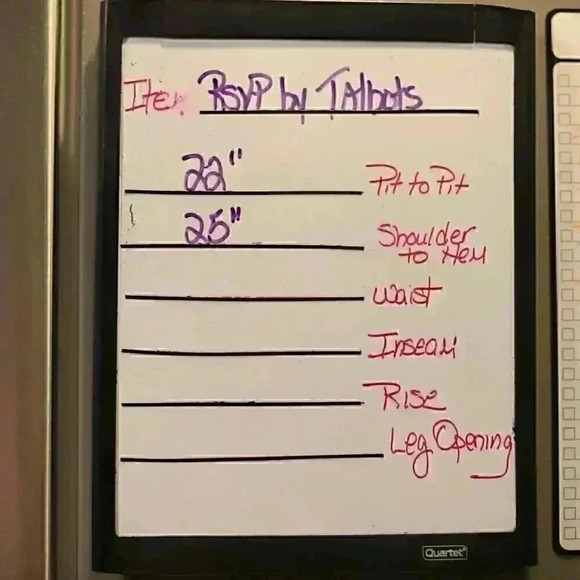 Item RSVP by TAlbots
22" Pit to Pit
25" Shoulder
to Hem
Waist
Inseam
Rise
Leg Opening
Quartet